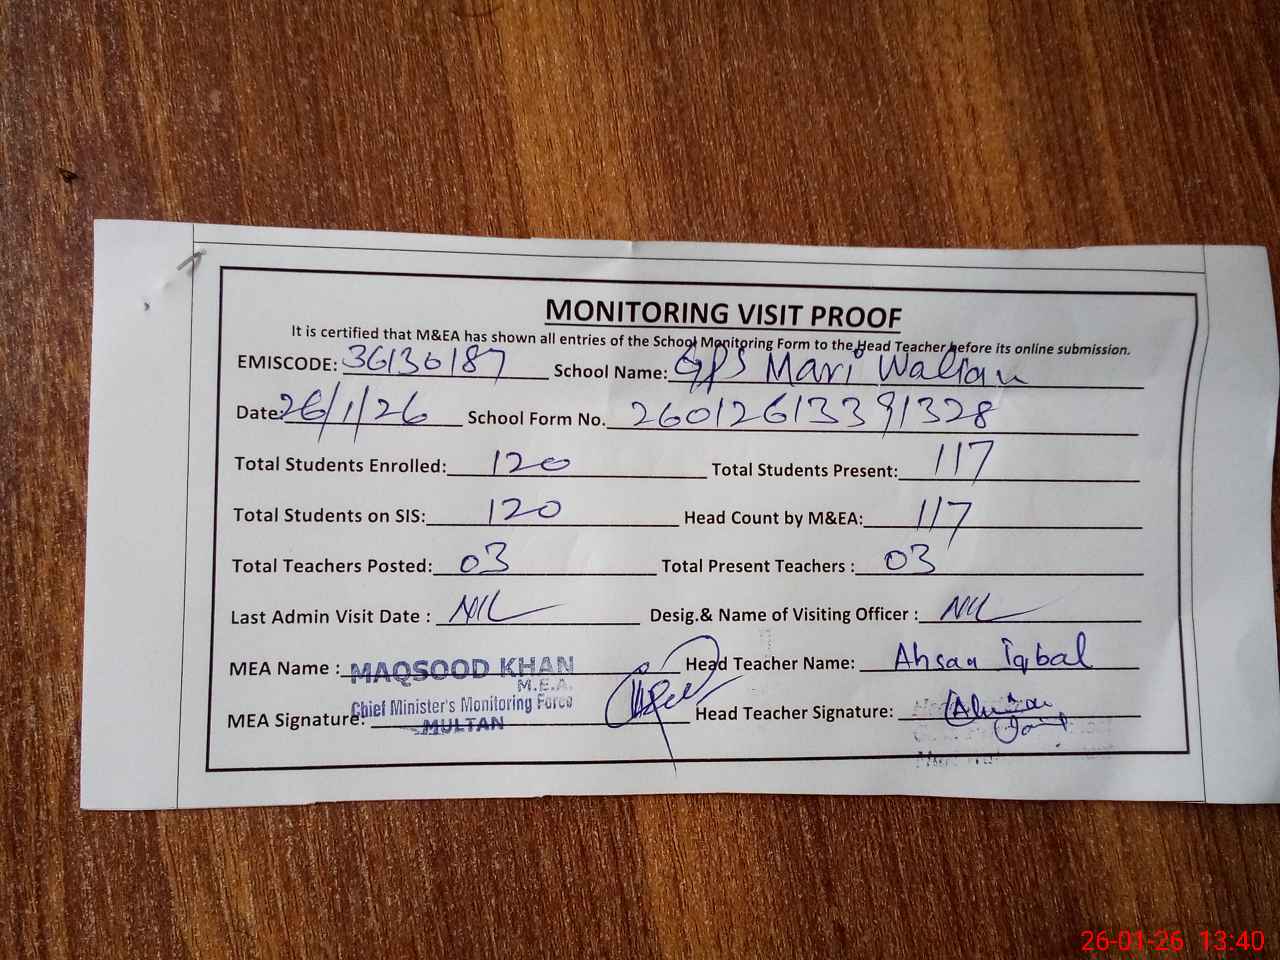 MONITORING VISIT PROOF
It is certified that M&EA has shown all entries of the School Monitoring Form to the Head Teacher before its online submission.
EMISCODE: 36130187 School Name: GPS Mari Walian
Date: 26/1/26 School Form No. 26012613391328
Total Students Enrolled: 120 Total Students Present: 117
Total Students on SIS: 120 Head Count by M&EA: 117
Total Teachers Posted: 03 Total Present Teachers : 03
Last Admin Visit Date : NIL Desig.& Name of Visiting Officer : NIL
MEA Name : MAQSOOD KHAN Head Teacher Name: Ahsan Iqbal
M.E.A.
Chief Minister's Monitoring Force
MEA Signature: MULTAN Head Teacher Signature:
26-01-26 13:40